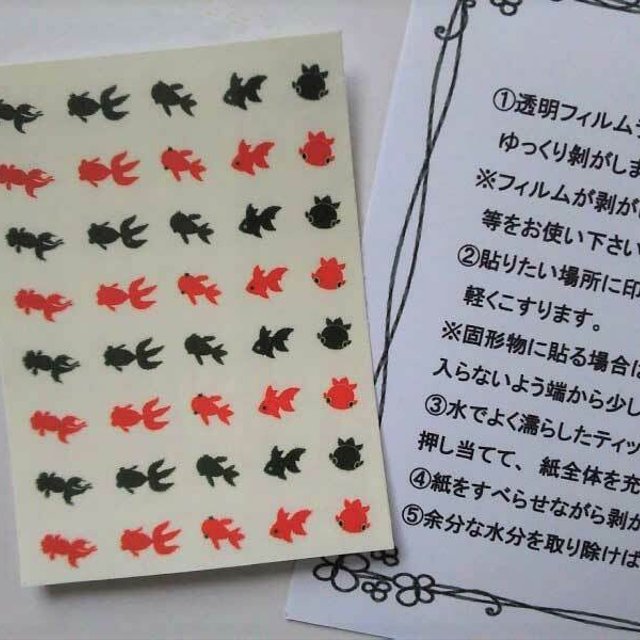 ①透明フィルム
ゆっくり剥がしま
※フィルムが剥が
等をお使い下さい
②貼りたい場所に印
軽くこすります。
※固形物に貼る場合は
入らないよう端から少し
③水でよく濡らしたティッ
押し当てて、紙全体を充
④紙をすべらせながら剥が
⑤余分な水分を取り除けば